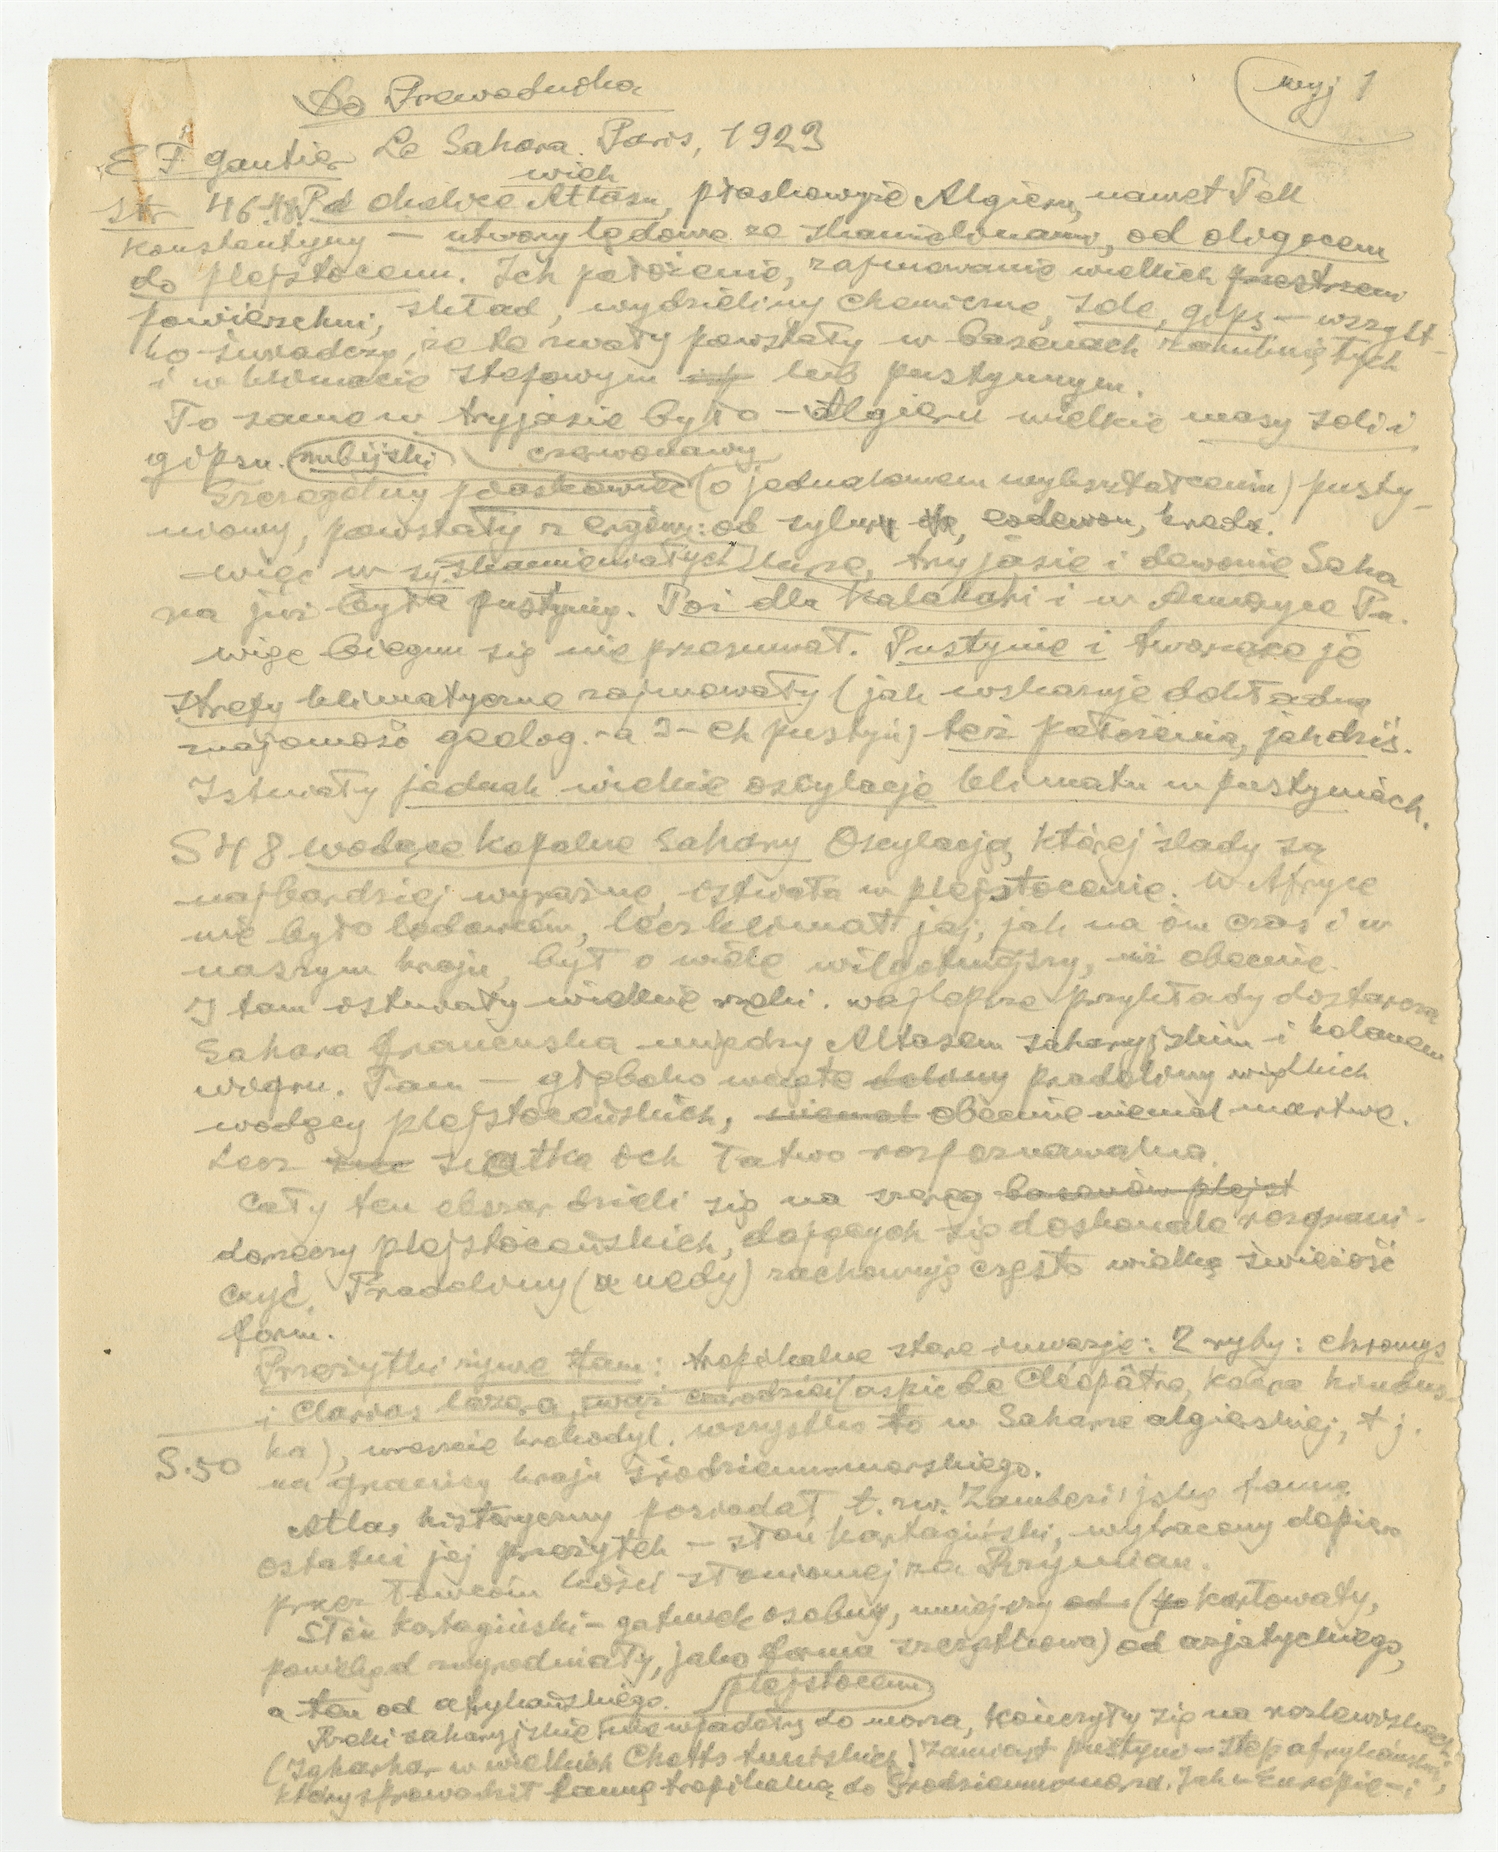 Do Przewodnika
wyj 1
E F Gautier Le Sahara. Paris, 1923
wieh
Str 46-48 Pd okolice Atlasu, płaskowyże Algieru, nawet Tell
Konstantyny — utwory lądowe ze skamielinami, od oligocenu
do plejstocenu. Ich położenie, zajmowanie wielkich przestrzeni
powierzchni, skład, wydzieliny chemiczne, sole, gips — wszyst-
ko świadczy, że te zwały powstały w basenach zamkniętych
i w klimacie stepowym lub pustynnym.
To samo w tryjasie było — Algieru wielkie masy soli i
gipsu. nubijski czerwonawy
Szczególny piaskowiec (o jednakowem wykształceniu) pusty-
niowy, powstały z ergów: od syluru, eodewon, kreda.
więc w skamieniałych Sahara, tryjasie i dewonie Saha
ra już była pustynią. Toż dla Kalahari i w Ameryce Pn.
więc biegun się nie przesuwał. Pustynie i tworzące je
strefy klimatyczne zajmowały (jak wskazuje dokładna
znajomość geolog. a 2-ch pustyń) też położenia, jak dziś.
Istniały jednak wielkie oscylacje klimatu w pustyniach.
S 48 wodze kopalne Sahary Oscylacja, której ślady są
najbardziej wyraźne, istniała w plejstocenie. W Afryce
nie było lodowców, lecz klimat jej, jak na ów czas i w
naszym kraju, był o wiele wilgotniejszy, niż obecnie.
I tam istniały wielkie rzeki. najlepsze przykłady dostarcza
Sahara francuska między Atlasem saharyjskim i kolanem
Nigru. Tam — głęboko wcięte doliny pradoliny wielkich
wodzy plejstoceńskich, niemal obecnie niemal martwe.
Lecz siatka ich łatwo rozpoznawalna.
Cały ten obszar dzieli się na szereg basenów plejst
dorzeczy plejstoceńskich, dających się doskonale rozgrani-
czyć. Pradoliny (uedy) zachowują często wielką świeżość
form.
Przeżytki żywe tam: tropikalne stare inwazje: 2 ryby: chromys
i Clarias lazera, wąż czarodziei (aspic de Cléopâtre, kobra hindus-
S. 50 ka), wreszcie krokodyl. wszystko to w Saharze algierskiej, t j.
na granicy kraju śródziemnomorskiego.
Atlas historyczny posiadał t. zw. Zambezijską faunę
ostatni jej przeżytek — słoń kartagiński, wytracony dopiero
przez łowców kości słoniowej za Rzymian.
Słoń kartagiński — gatunek osobny, mniejszy od (karłowaty,
poniekąd zwyrodniały, jako forma szczątkowa) od azjatyckiego,
a ten od afrykańskiego. plejstocenu
Rzeki saharyjskie nie wpadały do morza, kończyły się na rozlewiskach
(Igharhar w wielkich Chotts tuniskich). Zamiast pustyni — step afrykański,
który sprowadził faunę tropikalną do Śródziemnomorza. Jak w Europie — i